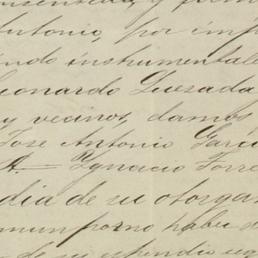 Antonio, por imp
endo instrumentale
eonardo Quesada
y vecinos, damos
Jose Antonio Garc
A. — Ygnacio Torre
dia de su otorga
mun por no haber